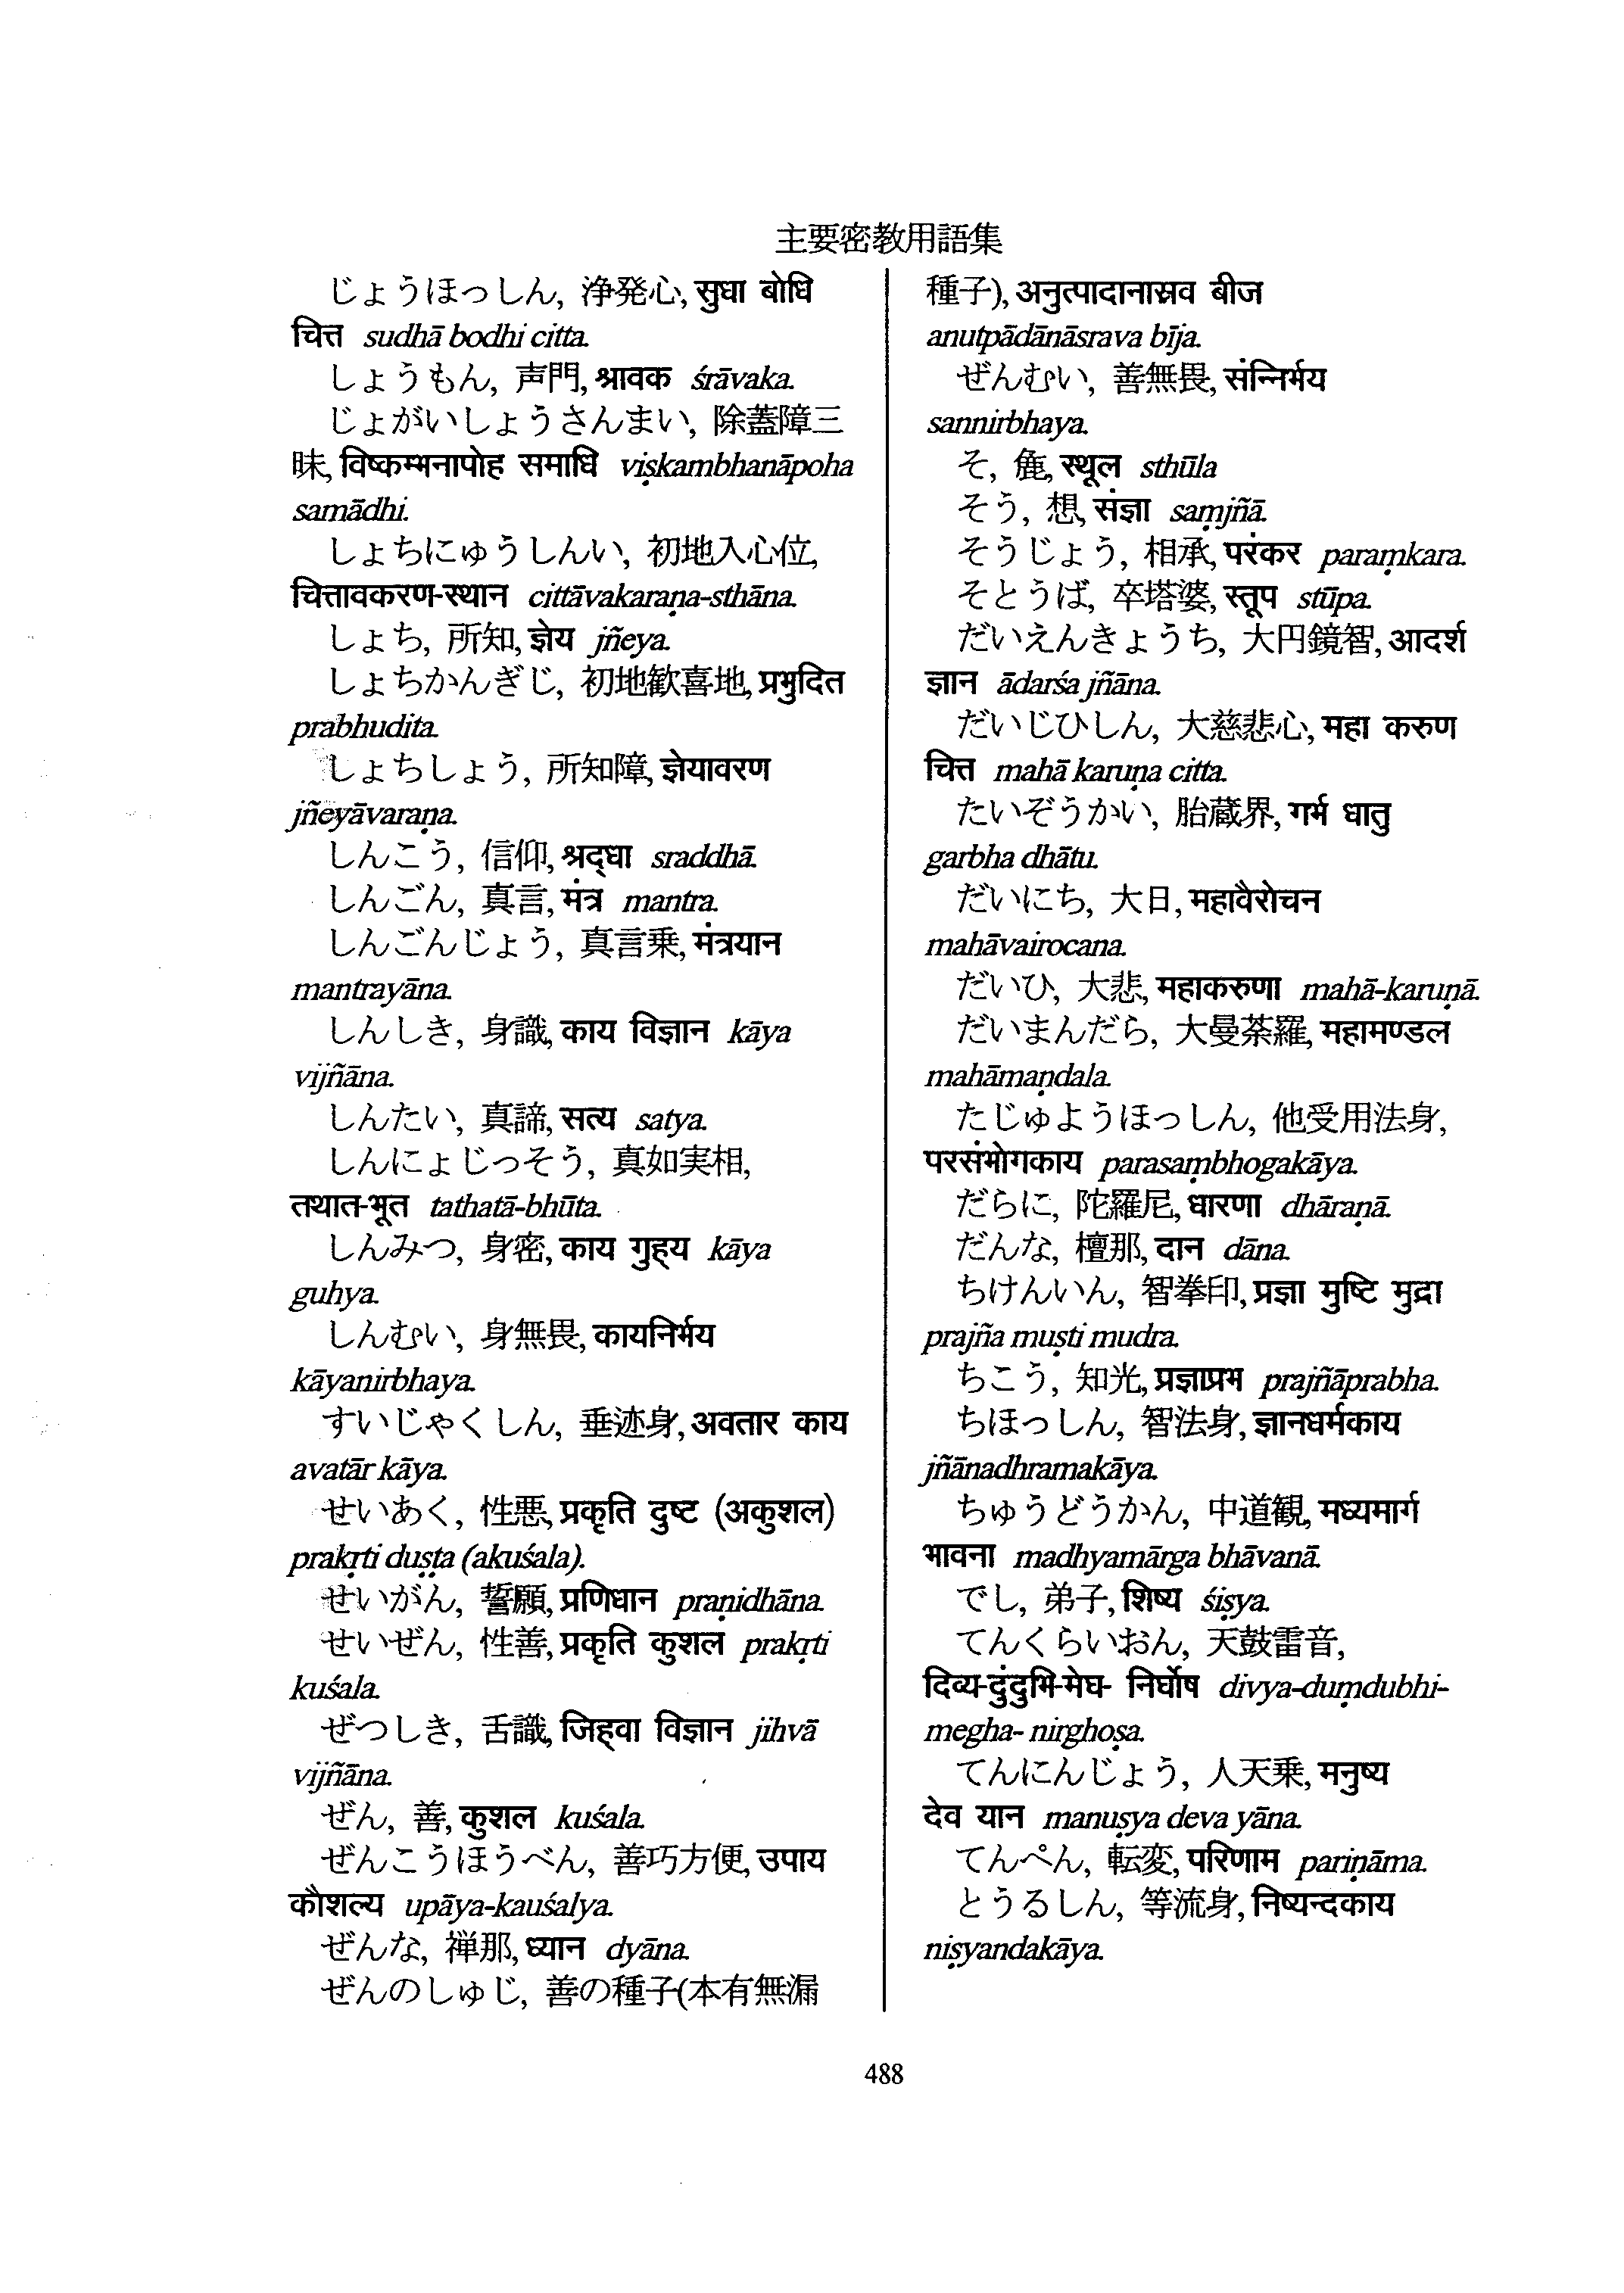 主要密教用語集
じょうほっしん, 浄発心, सुधा बोधि
चित्त sudhā bodhi citta.
しょうもん, 声門, श्रावक śrāvaka.
じょがいしょうさんまい, 除蓋障三
昧, विष्कम्भनापोह समाधि viṣkambhanāpoha
samādhi.
しょちにゅうしんい, 初地入心位,
चित्तावकरण-स्थान cittāvakaraṇa-sthāna.
しょち, 所知, ज्ञेय jñeya.
しょちかんぎじ, 初地歓喜地, प्रभुदित
prabhudita.
しょちしょう, 所知障, ज्ञेयावरण
jñeyāvaraṇa.
しんこう, 信仰, श्रद्धा sraddhā.
しんごん, 真言, मंत्र mantra.
しんごんじょう, 真言乗, मंत्रयान
mantrayāna.
しんしき, 身識, काय विज्ञान kāya
vijñāna.
しんたい, 真諦, सत्य satya.
しんにょじっそう, 真如実相,
तथात-भूत tathatā-bhūta.
しんみつ, 身密, काय गुह्य kāya
guhya.
しんむい, 身無畏, कायनिर्भय
kāyanirbhaya.
すいじゃくしん, 垂迹身, अवतार काय
avatār kāya.
せいあく, 性悪, प्रकृति दुष्ट (अकुशल)
prakṛti duṣṭa (akuśala).
せいがん, 誓願, प्रणिधान praṇidhāna.
せいぜん, 性善, प्रकृति कुशल prakṛti
kuśala.
ぜつしき, 舌識, जिह्वा विज्ञान jihvā
vijñāna.
ぜん, 善, कुशल kuśala.
ぜんこうほうべん, 善巧方便, उपाय
कौशल्य upāya-kauśalya.
ぜんな, 禅那, ध्यान dyāna.
ぜんのしゅじ, 善の種子(本有無漏
種子), अनुत्पादानास्रव बीज
anutpādānāsrava bīja.
ぜんむい, 善無畏, संन्निर्भय
sannirbhaya.
そ, 麁, स्थूल sthūla
そう, 想, संज्ञा saṃjñā.
そうじょう, 相承, परंकर paraṃkara.
そとうば, 卒塔婆, स्तूप stūpa.
だいえんきょうち, 大円鏡智, आदर्श
ज्ञान ādarśa jñāna.
だいじひしん, 大慈悲心, महा करुण
चित्त mahā karuṇa citta.
たいぞうかい, 胎蔵界, गर्भ धातु
garbha dhātu.
だいにち, 大日, महावैरोचन
mahāvairocana.
だいひ, 大悲, महाकरुणा mahā-karuṇā.
だいまんだら, 大曼荼羅, महामण्डल
mahāmaṇdala.
たじゅようほっしん, 他受用法身,
परसंभोगकाय parasaṃbhogakāya.
だらに, 陀羅尼, धारणा dhāraṇā.
だんな, 檀那, दान dāna.
ちけんいん, 智拳印, प्रज्ञा मुष्टि मुद्रा
prajña muṣti mudra.
ちこう, 知光, प्रज्ञाप्रभ prajñāprabha.
ちほっしん, 智法身, ज्ञानधर्मकाय
jñānadhramakāya.
ちゅうどうかん, 中道観, मध्यमार्ग
भावना madhyamārga bhāvanā.
でし, 弟子, शिष्य śiṣya.
てんくらいおん, 天鼓雷音,
दिव्य-दुंदुभि-मेघ- निर्घोष divya-duṃdubhi-
megha- nirghoṣa.
てんにんじょう, 人天乗, मनुष्य
देव यान manuṣya deva yāna.
てんぺん, 転変, परिणाम pariṇāma.
とうるしん, 等流身, निष्यन्दकाय
niṣyandakāya.
488